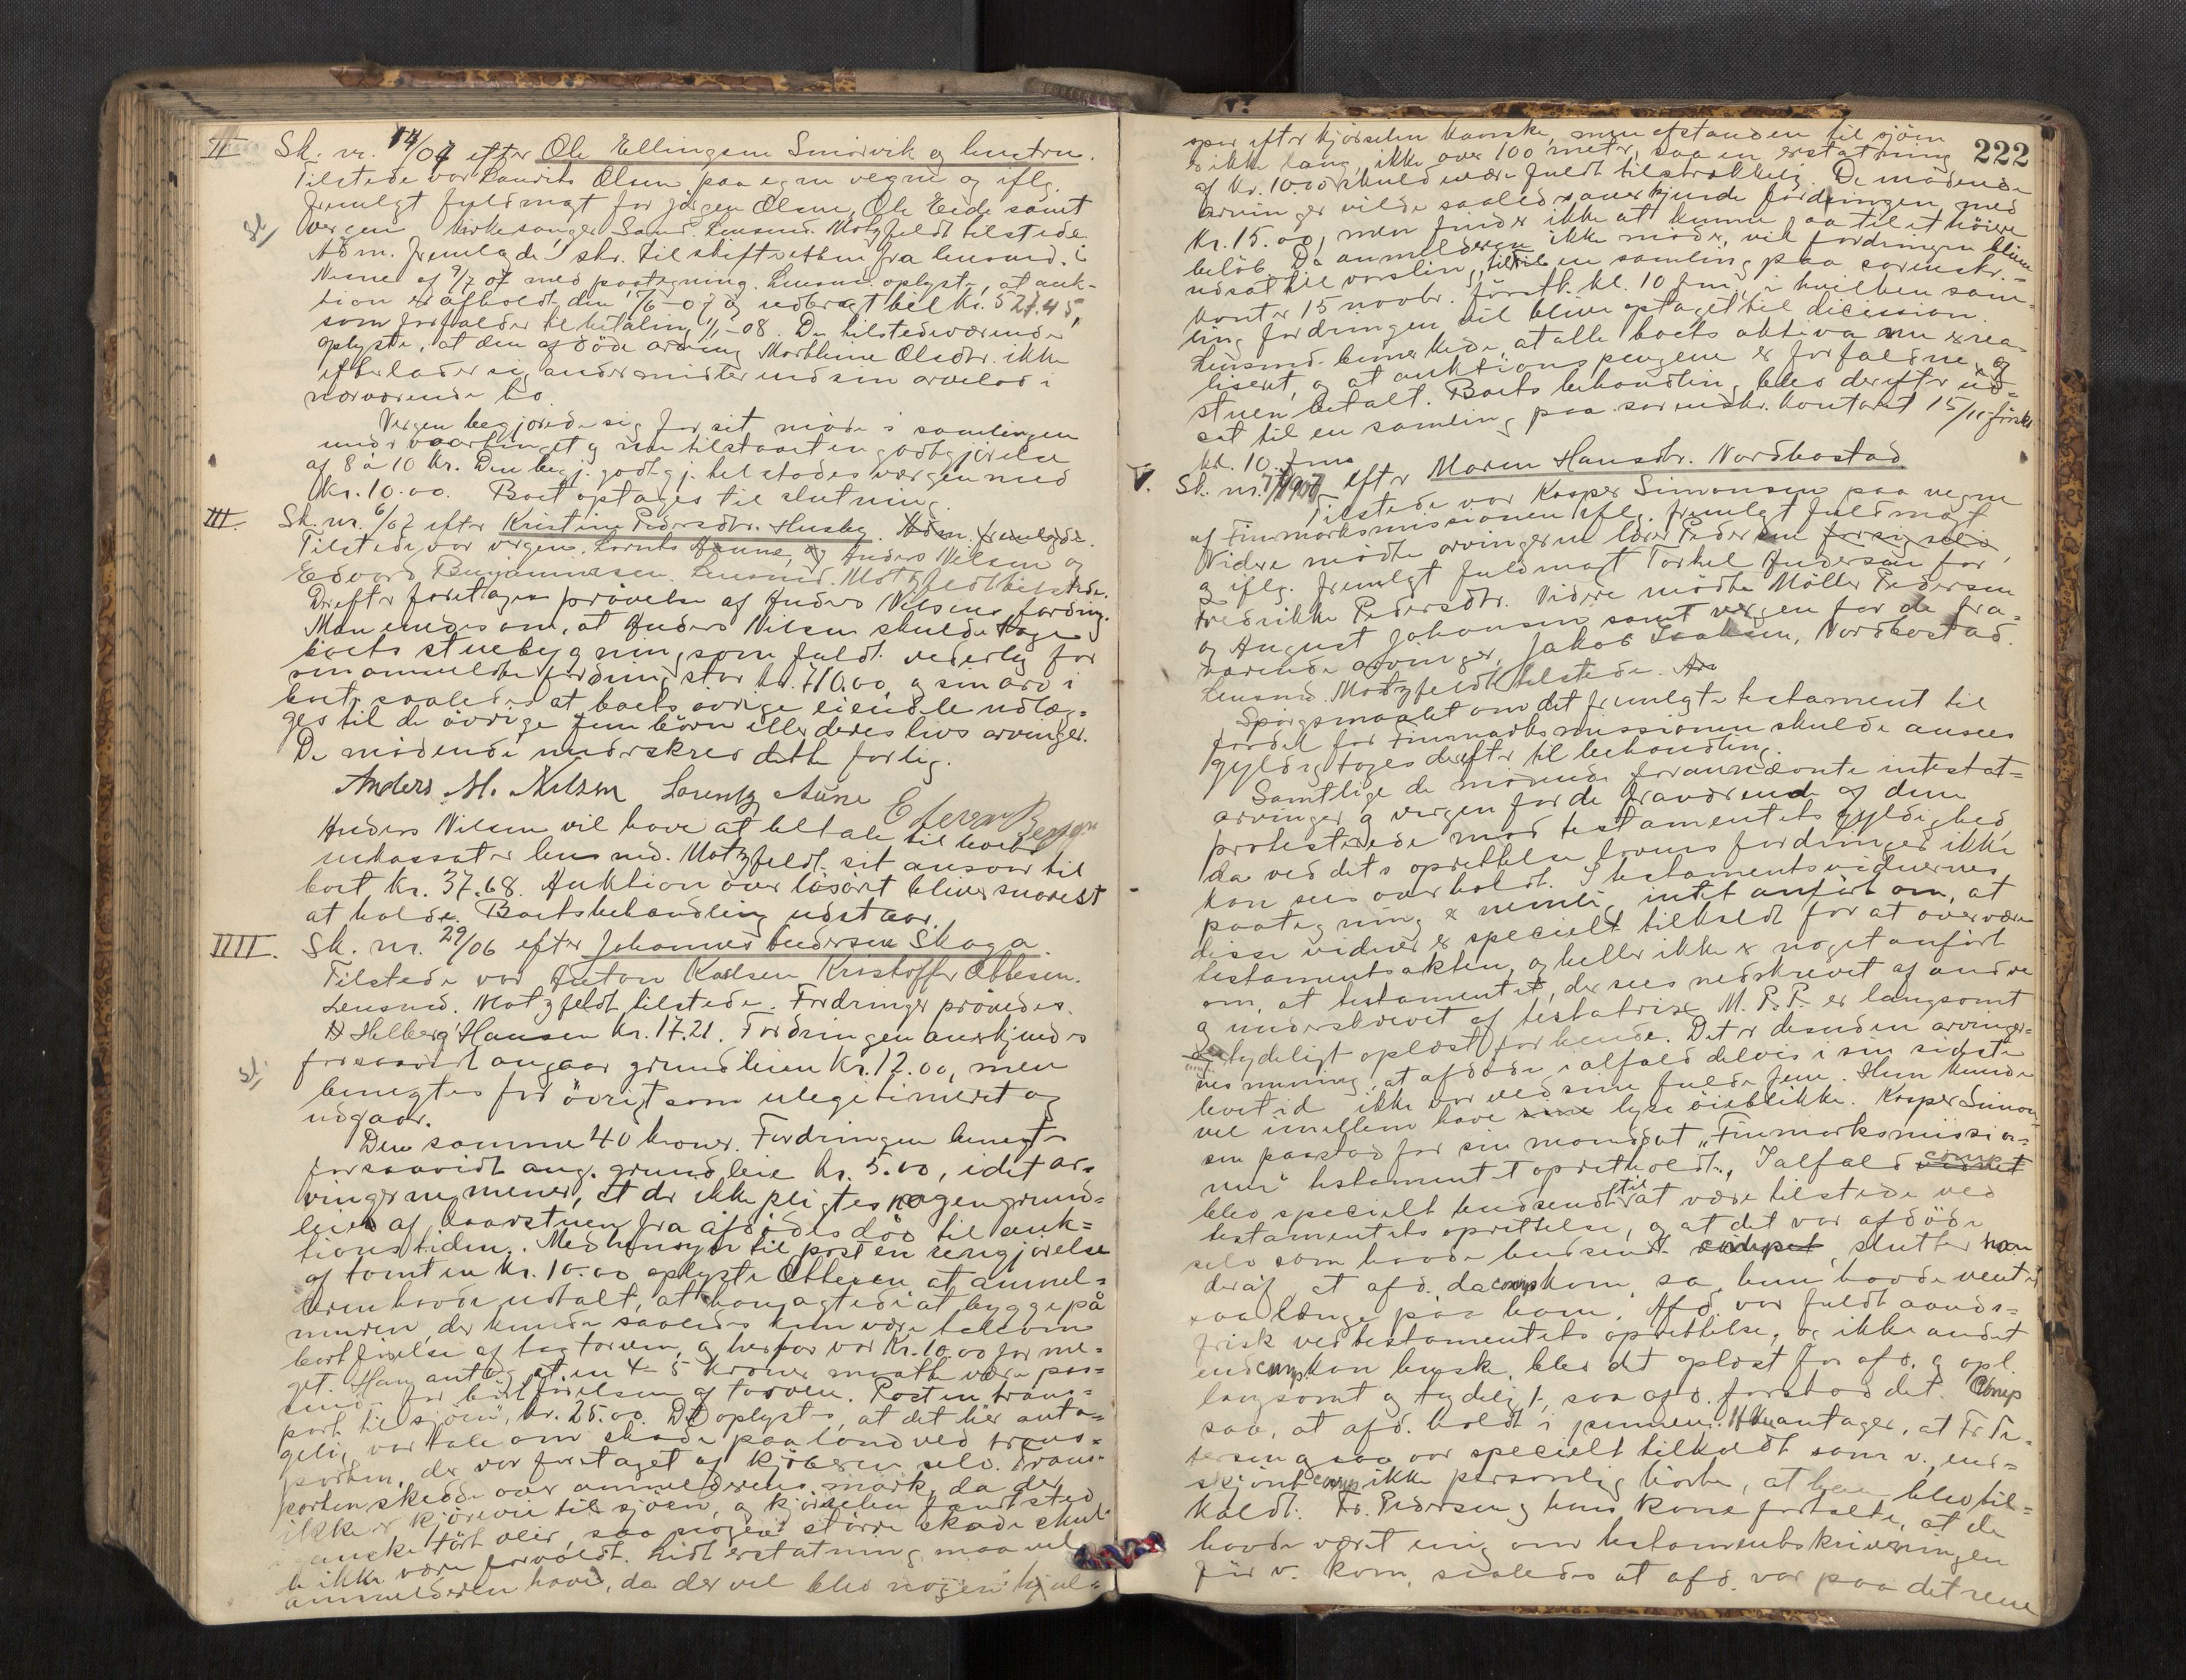 II Sk. nr. 14/07 efter Ole Ellingsen Smörvik og hustru.
Tilstede var Laurits Olsen paa egne vegne og iflg.
fremlgt fuldmagt for Jörgen Olsen, Ole Eide samt
vergen Kirkesanger Sand. Lensmd. Motzfeldt tilstede.
Adm. fremlagde skr. til skifteretten fra lensmd. i
Nesne af 9/7 07 med paategning. Lensmd. oplyste, at auk-
tion er afholdt den 1/6-07 og udbragt bel. kr. 527.45,
som forfalder til betaling 1/1-08. De tilstedeværende
oplyste, at den afdöde arving Marthine Olsdtr. ikke
efterlader sig andre midler end sin arvelod i
nærværende bo.
Vergen begjærede sig for sit möde i samlingen
under vaartinget og nu tilstaaet en godtgjörelse
af 8 à 10 kr. Den begj. godtgj. tilstodes vergen med
kr. 10.00. Boet optages til slutning.
III. Sk. nr. 6/07 efter Kristine Pedersdtr. Husby. Adm. fremlagde.
Tilstede var vergen Lorents Aunne, og Anders Nilsen og
Edvard Benjaminsen. Lensmd. Motzfeldt tilstede.
Derefter foretages prövelse af Anders Nilsens fordring.
Man enedes om, at Anders Nilsen skulde tage
boets stuebygning som fuldt vederlag for
sin anmeldte fordring stor kr. 410.00, og sin arv i
boet saaledes at boets övrige eiendele udlæg-
ges til de övrige fem börn eller deres livsarvinger.
De mödende underskrev dette forlig.
Anders M. Nilsen Lorentz Aune Edvar Benja
Anders Nilsen vil have at betale til boets
inkassator lensmd. Motzfeldt sit ansvar til
boet kr. 37.68. Auktion over lösöret bliver snarest
at holde. Boets behandling udstaar.
IIII. Sk. nr. 29/06 efter Johannes Andersen Skaga.
Tilstede var Anton Karlsen Kristoffer Ottesen.
Lensmd. Motzfeldt tilstede. Fordringer prövedes.
Helberg Hansen kr. 17.21. Fordringen anerkjendes
forsaavidt angaar grundleien kr. 12.00, men
benegtes for övrigt som ulegitimeret og
udgaar.
Den samme 40 kroner. Fordringen benegtes
forsaavidt ang. grundleie kr. 5.00, idet ar-
vingerne mener, at der ikke pligtes nogen grund-
leie af kaarstuen fra afdödes död til auk-
tionstiden. Med hensyn til posten rengjörelse
af tomten kr. 10.00 oplyste Ottesen at anmel-
deren havde udtalt, at han agtede at bygge på
muren, der kunde saaledes kun være tale om
bortförelse af tagtorven, og herfor var kr. 10.00 for me-
get. Han antog at en 4-5 kroner maatte være pas-
sende for bortförelsen af torven. Posten "trans-
port til sjöen", kr. 25.00. Det oplystes, at det her anta-
gelig var tale om skade paa land ved trans-
porten, der var foretaget af kjöberen selv. Trans-
porten skedde over anmelderens mark, da der
ikke er kjörevei til sjöen, og kjörselen fandt sted
i ganske tört veir, saa nogen större skade skul-
de ikke være forvoldt. Lidt erstatning maa vel
anmelderen have, da der vel blev nogen hjul-
222
spor efter kjörselen kanske, men afstanden til sjöen
er ikke lang, ikke over 100 meter, saa en erstatning
af kr. 10.00 skulde være fuldt tilstrækkelig. De mödende
arvinger vilde saaledes anerkjende fordringen med
kr. 15.00, men finder ikke at kunne gaa til et höiere
belöb. Da anmelderen ikke möder, vil fordringen blive
udsat til varsling til en samling paa sorenskr.-
kontor 15 novbr. förstk. kl. 10 fm., i hvilken sam-
ling fordringen vil blive optaget til dicission.
Lensmd. bemerkede, at alle boets aktiva nu er rea-
liseret, og at auktionspengene er forfaldne og
stuen betalt. Boets behandling blev derefter ud-
sat til en samling paa sorenskr. kontoret 15/11 förstk.
kl. 10 fm.
V. Sk. nr. 7/1907 efter Maren Hansdtr. Nordbostad
Tilstede var Kasper Simonsen paa vegne
af Finmarksmissionen iflg. fremlgt fuldmagt
Videre mödte arvingerne Peder for sig selv,
og iflg. fremlgt fuldmagt Torkel Andersen for
Fredrikke Pedersdtr. Videre mödte Möller Pedersen
og August Johansen samt vergen for de fra-
værende arvinger, Jakob Isaksen, Nordbostad.
Lensmd. Motzfeldt tilstede.
Spörgsmaalet om det fremlgte testament til
fordel for Finmarksmissionen skulde ansees
gyldig toges derefter til behandling.
Samtlige de mödende forannævnte intestat-
arvinger og vergen for de fraværende af dem
protesterede mod testamentets gyldighed,
da ved dets oprettelse lovens fordringer ikke
kan sees overholdt. I testamentsvidnernes
paategning er nemlig intet anfört om, at
disse vidner er specielt tilkaldt for at overvære
testamentsakten, og heller ikke er noget anfört
om, at testamentet, der sees nedskrevet af andre
og underskrevet af testatrix M. P. P. er langsomt
og tydeligt oplæst for hende. Det er desuden arvinger-
nes mening, at afdöde ialfald delvis i sin sidste
levetid ikke var ved sine fulde fem. Hun kunde
vel imellem have lyse öieblikke. Kasper Simon-
sen paastod for sin mandant "Finmarksmissio-
nen" testamentet opretholdt. Ialfald comp.
blev specielt budsendt til at være tilstede ved
testamentets oprettelse, og at det var afdöde
selv som havde budsendt comp. slutter han
deraf at afd., da comp kom, sa, hun havde ventet
saa længe paa ham. Afd. var fuldt aands-
frisk ved testamentets oprettelse, og ikke andet
end comp kan husk, blev det oplæst for afd. og opl.
langsomt og tydeligt, saa afd. forstod det. Comp
saa, at afd. holdt i pennen. Han antager, at Fr. Pe-
dersen ogsaa var specielt tilkaldt som v., end-
skjönt comp ikke personlig hörte, at han blev til-
kaldt. Fr. Pedersen og hans kone fortalte, at de
havde været enig om testamentskrivningen
för v. kom, saaledes at afd. var paa det rene